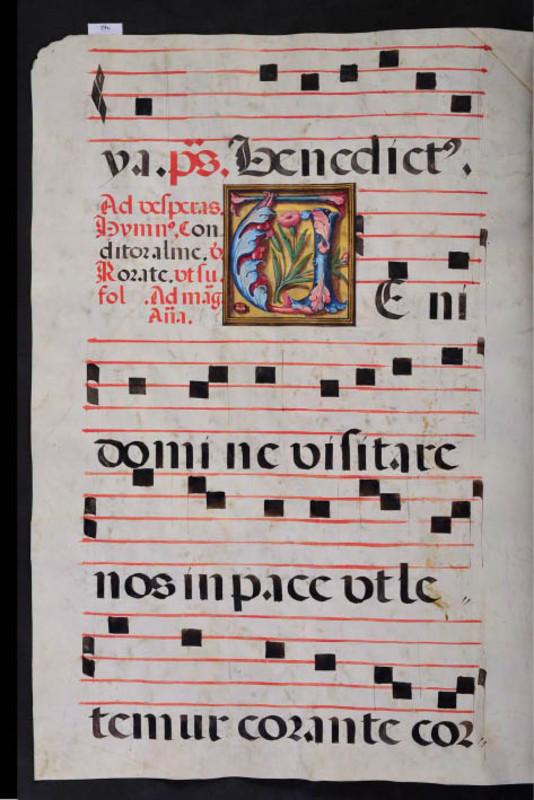 va. ps. Benedictꝰ.
Ad vesperas.
Hymnꝰ. Con
ditor alme. v
Rorate, vt su.
fol . Ad mag̃
Aña.
VE ni
domi ne visitare
nos in pace vt le
temur coꝛ ante coꝛ